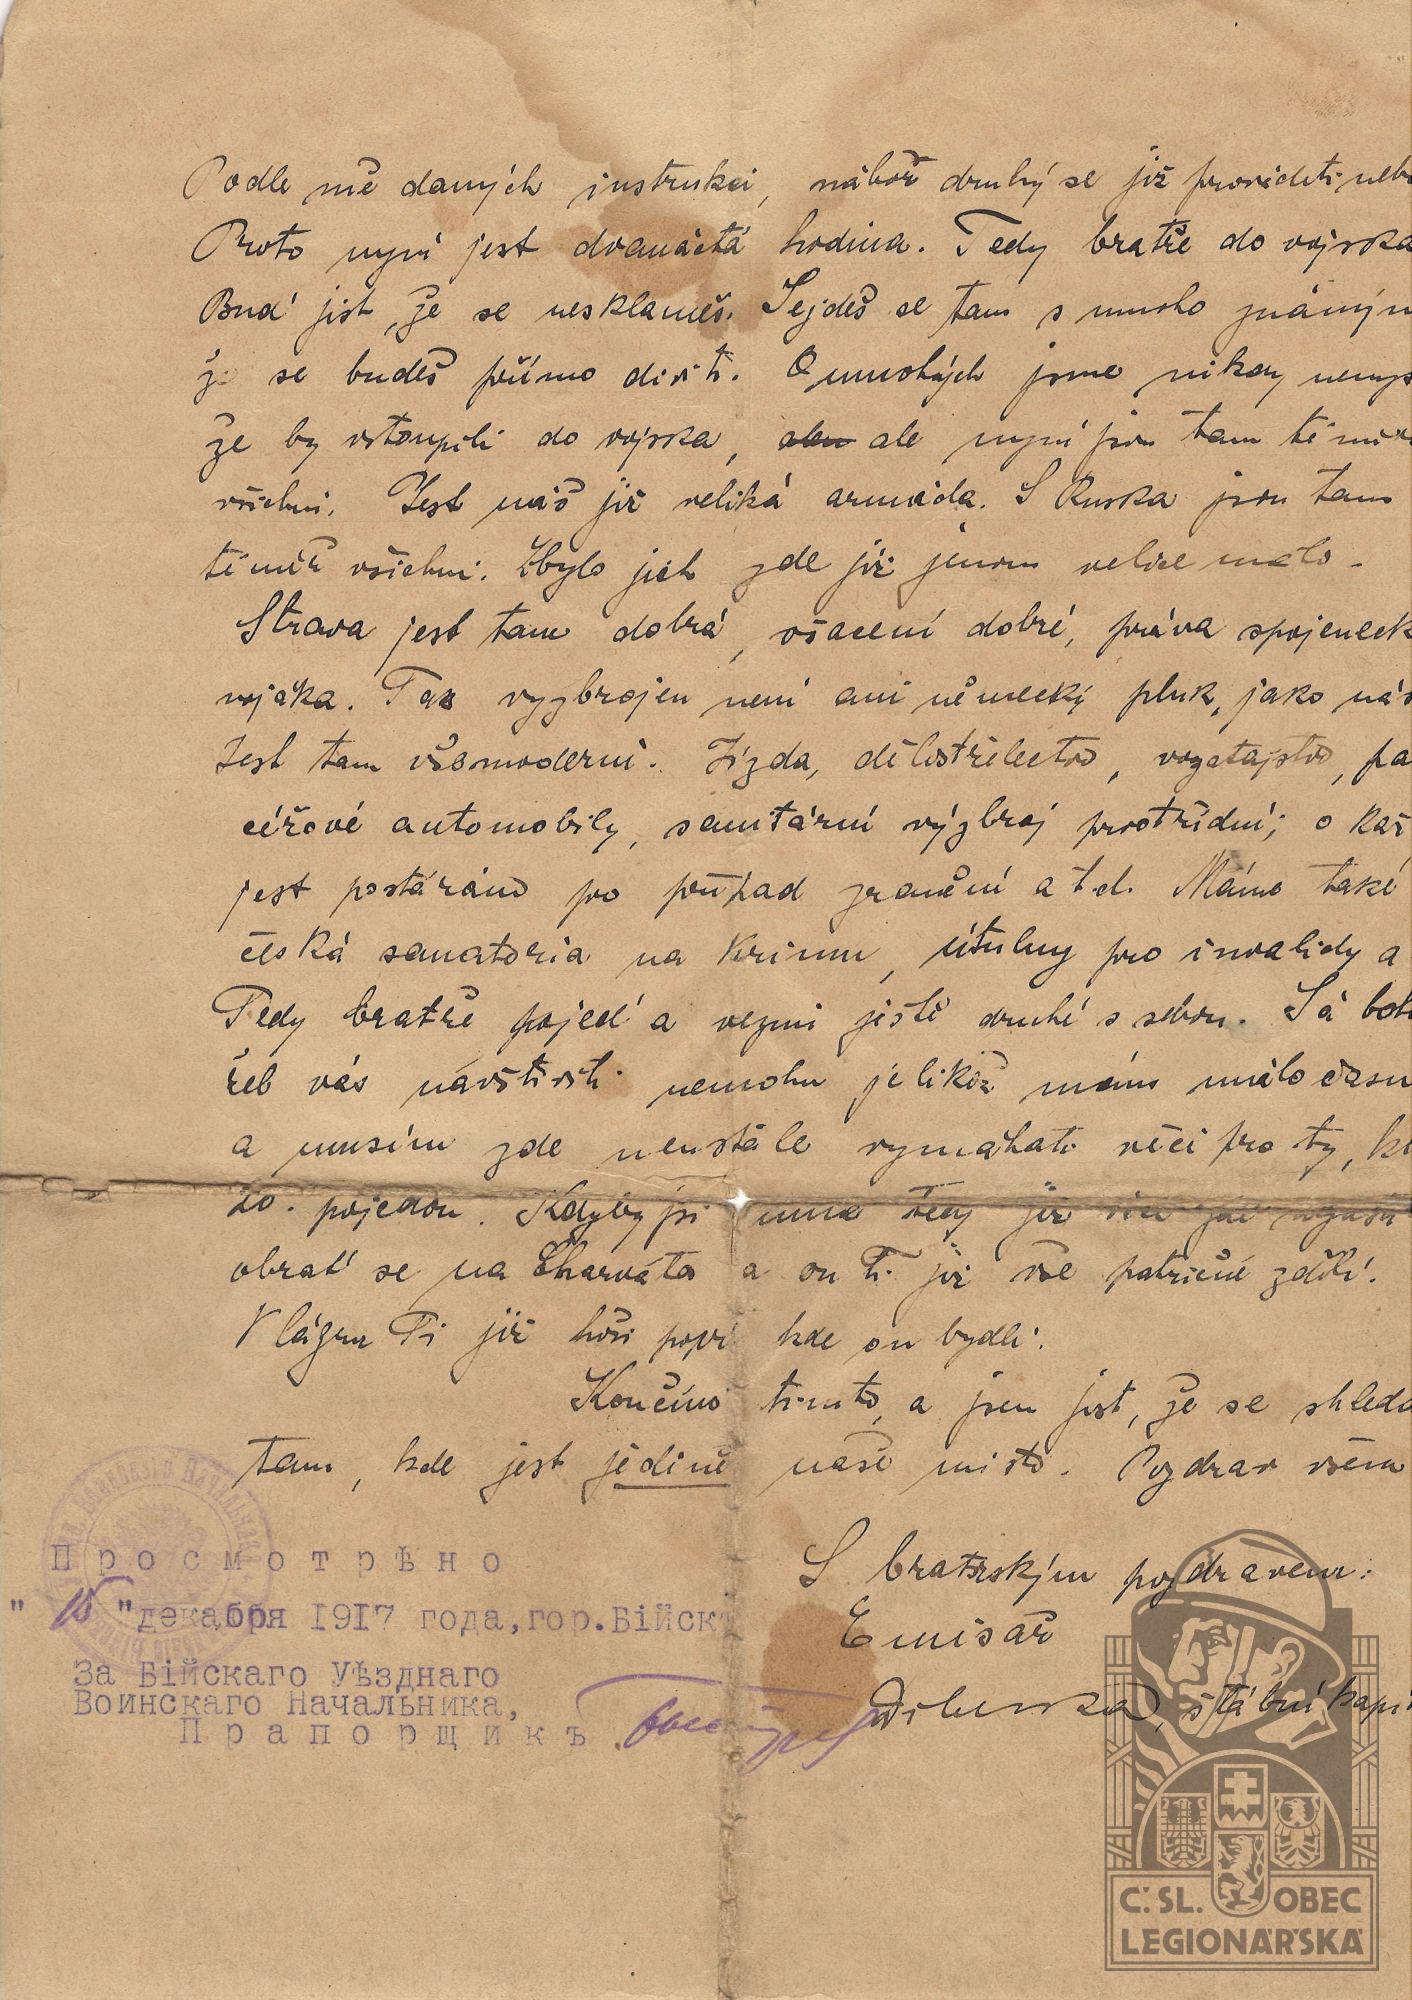 Podle mě daných instrukcí, nábor druhý se již prováděti nebu
Proto nyní jest dvanáctá hodina. Tedy bratře do vojska
Buď jist, že se nesklameš. Sejdeš se tam s mnoho známým
že se budeš přímo diviti. O mnohých jsme nikdy nemys
že by vstoupili do vojska, ale nyní jsou tam téměř
všichni. Jest náš již veliká armáda. S Ruska jsou tam
téměř všichni. Zbylo jich zde již jenom velice málo.
Strava jest tam dobrá, ošacení dobré, práva spojeneck
vojáka. Tak vyzbrojen není ani německý pluk, jako náš
Jest tam vše moderní. Jízda, dělostřelectvo, vozatajstvo, pan
céřové automobily, sanitární výzbroj prostřední; o kaž
jest postaráno pro případ zranění a t.d. Máme také
česká sanatoria na Krimu, útulny pro invalidy a
Tedy bratře pojeď a vezmi ještě druhé s sebou. Já boh
žel vás navštíviti nemohu jelikož mám málo času
a musím zde neustále vymáhati věci pro ty, kt
20. pojedou. Kdyby jsi mne tedy již
obrať se na Charváta a on Ti již vše patřičné zdělí.
V lágru Ti již hoši poví kde on bydlí.
Končímo tímto, a jsem jist, že se shledá
tam, kde jest jedině naše místo. Pozdrav všem
S bratrským pozdravem:
Emisař
štábní kapi
Просмотрѣно
" 15 " декабря 1917 года, гор. Бійскъ
За Бійскаго Уѣзднаго
Воинскаго Начальника,
Прапорщикъ
Č.SL. OBEC
LEGIONÁŘSKÁ